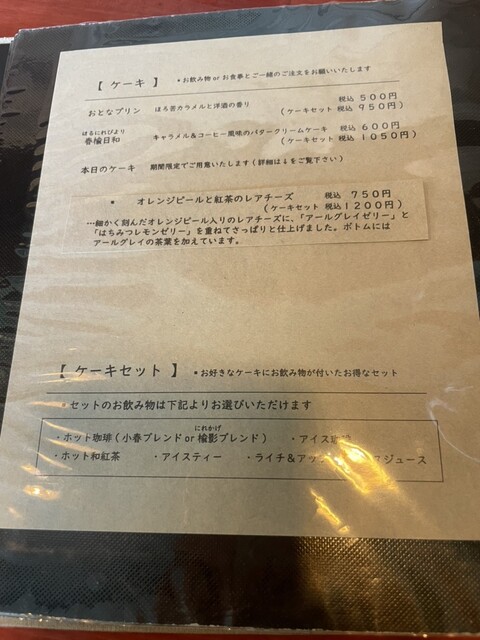 【 ケーキ 】 *お飲み物 or お食事とご一緒のご注文をお願いいたします
おとなプリン ほろ苦カラメルと洋酒の香り 税込 500円
(ケーキセット 税込 950円)
はるにれびより
春楡日和 キャラメル&コーヒー風味のバタークリームケーキ 税込 600円
(ケーキセット 税込 1050円)
本日のケーキ 期間限定でご用意いたします(詳細は↓をご覧下さい)
* オレンジピールと紅茶のレアチーズ 税込 750円
(ケーキセット 税込1200円)
…細かく刻んだオレンジピール入りのレアチーズに、「アールグレイゼリー」と
「はちみつレモンゼリー」を重ねてさっぱりと仕上げました。ボトムには
アールグレイの茶葉を加えています。
【 ケーキセット 】 *お好きなケーキにお飲み物が付いたお得なセット
*セットのお飲み物は下記よりお選びいただけます
にれかげ
・ホット珈琲(小春ブレンド or 楡影ブレンド) ・アイス
・ホット和紅茶 ・アイスティー ・ライチ&アッ ジュース